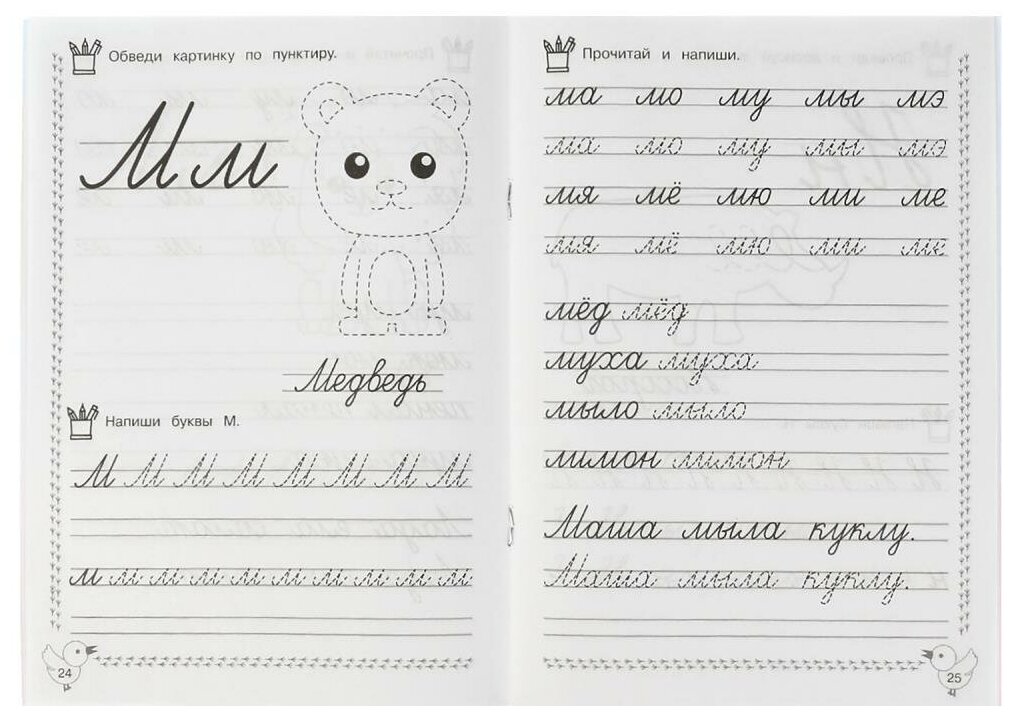 Обведи картинку по пунктиру.
Мм
Медведь
Напиши буквы М.
М М М М М М М М
м м м м м м м м м м
24
Прочитай и напиши.
ма мо му мы мэ
ма мо му мы мэ
мя мё мю ми ме
мя мё мю ми ме
мёд мёд
муха муха
мыло мыло
лимон лимон
Маша мыла куклу.
Маша мыла куклу.
25